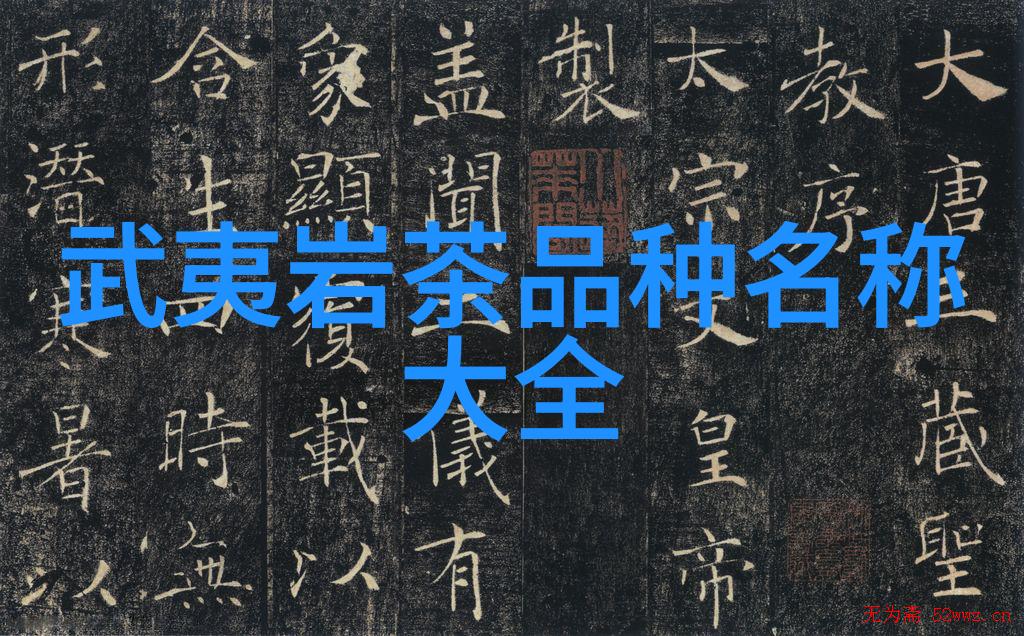 武夷岩茶品种名称
大全
大唐三藏聖
教序
太宗文皇帝
製
盖聞二儀有
象顯覆載以
含生四時無
形潛寒暑以
无为斋 52wwz.cn